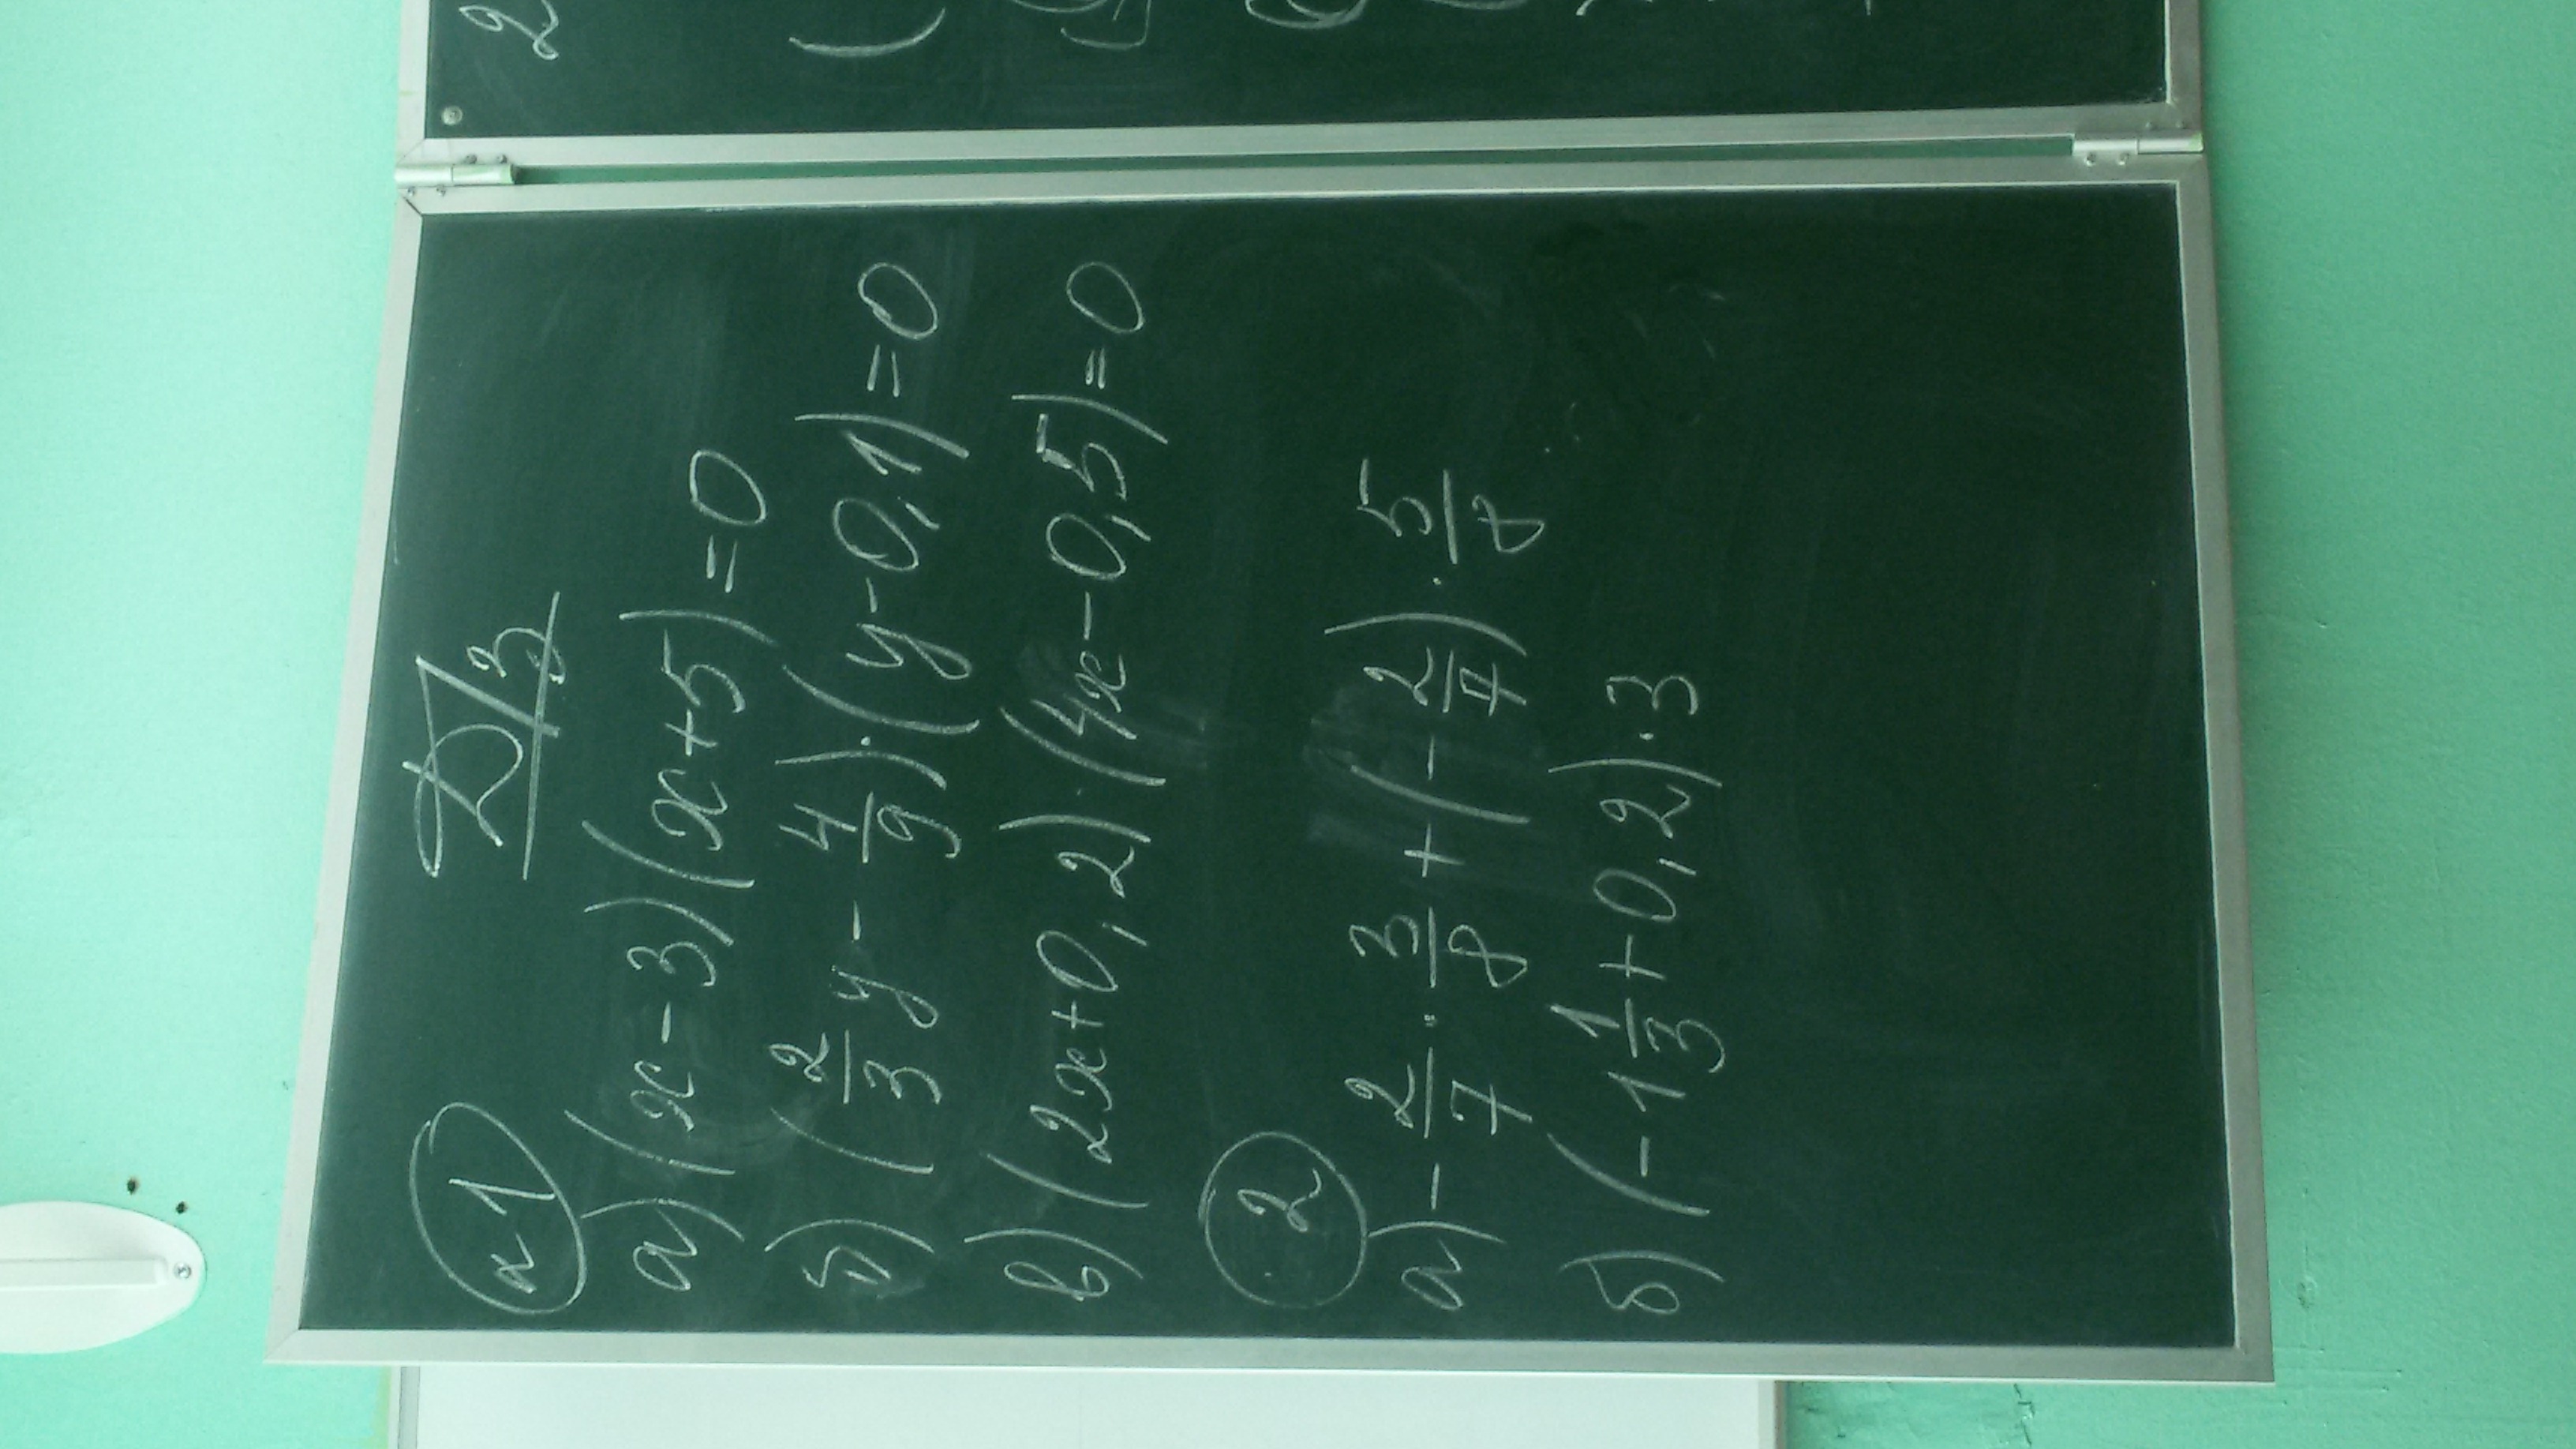 Д/з
№1
а) (x-3)(x+5)=0
б) (2/3 y - 4/9)·(y-0,1)=0
в) (2x+0,2)·(4x-0,5)=0
2
а) - 2/7 · 3/8 + (- 2/7) · 5/8
б) (-1 1/3 + 0,2)·3
2
(